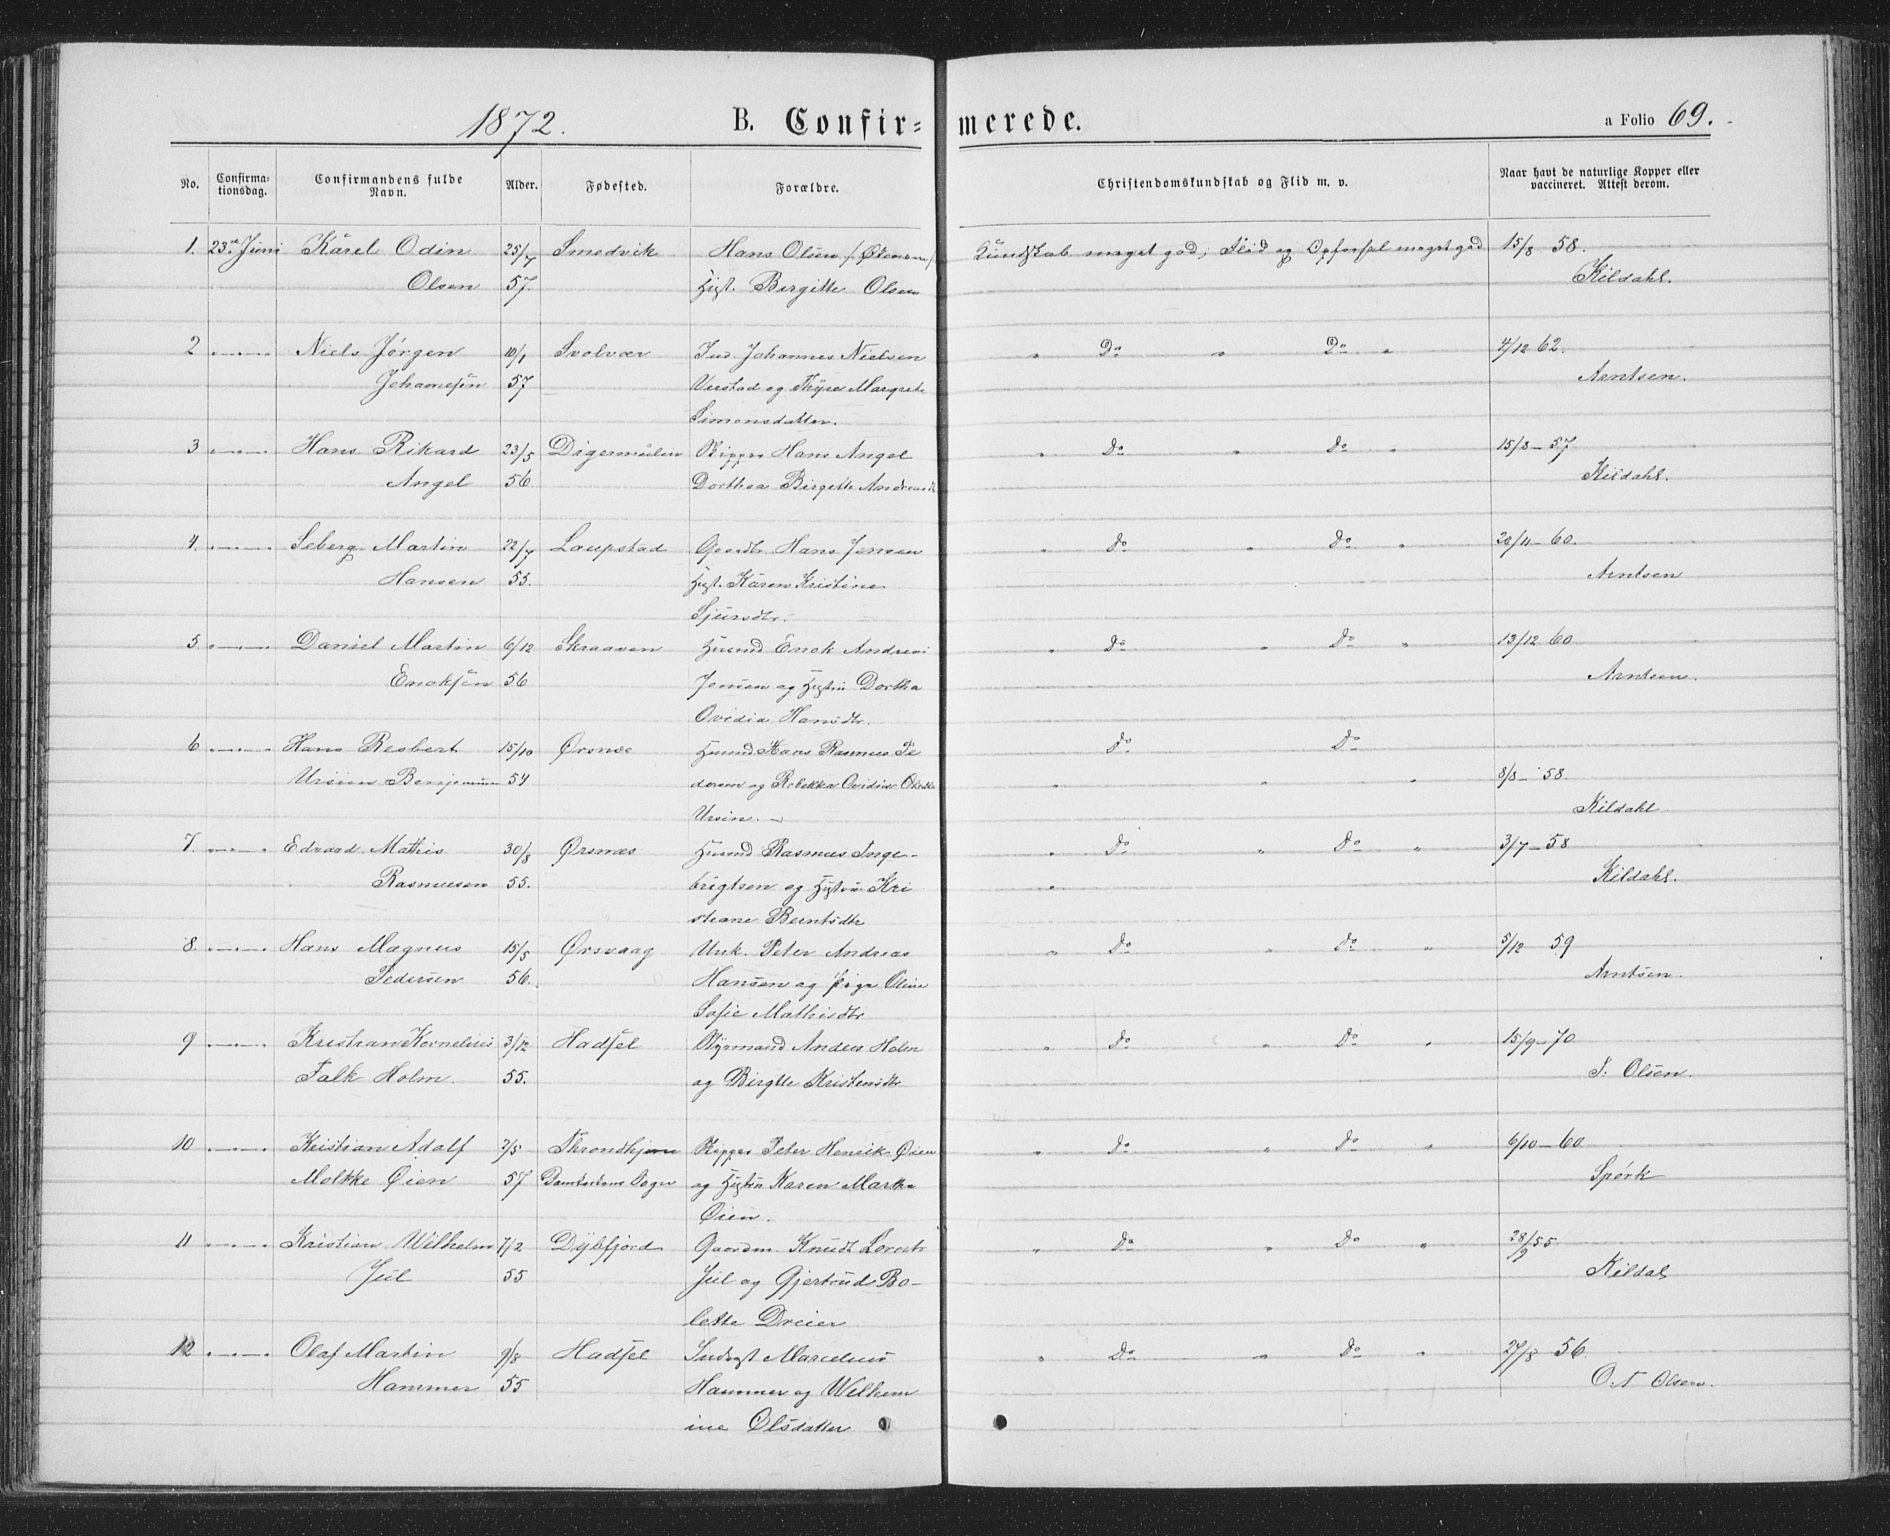 1872. B. Confir= merede. a Folio 69.
No. Confirmationsdag. Confirmandens fulde Navn. Alder. Fødested. Forældre. Christendomskundskab og Flid m. v. Naar havt de naturlige Kopper eller vaccineret. Attest derom.
1. 23de Juni Karel Odin 25/7 Smedvik Hans Olsen Kundskab meget god, Flid og Opførsel meget god 15/8 58.
Olsen 57. Hgst. Birgitte Olsen Kildahl.
2 Niels Jørgen 10/1 Svolvær Ind. Johannes Nielsen " Do " Do " 4/12 62.
Johannesen 57 og Thyra Margrete Arntsen.
Simonsdatter.
3 Hans Rikard 23/5 Digermulen Hans Angel " do " do " 15/8 - 57
Angel 56 Dorthea Birgitte Kildahl.
4. Seberg Martin 22/7 Laupstad Gaardbr. Hans Jensen " do " do " 20/11 - 60.
Hansen 55. Hgst. Karen Kristine Arntsen
Sjursdtr.
5 Daniel Martin 6/12 Skraaven Husmd Enok Andreas " do " do " 13/12 60
Enoksen 56 Jensen og Hustru Dorthea Arntsen.
Ovidia Hansdtr.
6 Hans Resbert 15/10 Ørsnes Husmd Hans Rasmus Pe do do
Ursin 54 dersen og Rebekka Ovidia " " " 8/8 - 58.
Ursin. Kildahl
7. Edvard Mathis 30/8 Ørsnæs Husmd Rasmus Inge- " do " do " 3/7 - 58
Rasmusen 55. brigtsen og Hustru Kri " Kildahl.
stiane Berntsdtr
8. Hans Magnus 15/5 Ørsvaag Unk. Peter Andreas " do " do " 5/12 59
Pedersen 56. Hansen og pige Oline Arntsen.
Sofie Mathisdtr
9 Kristian Kornelius 3/12 Hadsel Styrmand Anders Holm " do " do " 15/9 - 70
Falk Holm. 55. og Birgitte Kristensdtr Olsen.
10 Kristian Adolf 2/5 Throndhjem Skipper Peter Henrik Øien " do " do " 6/10 - 60
Moltke Øien 57 Domkirkens Sogn og Hustru Karen Martha Spørk
Øien.
11 Kristian Wilhelm 7/2 Dybfjord Gaardm. Knudt Lorents " do " do " 28/9 55
Jul 55 Juul og Gjertrud Bo- Kildal
lette Dreier
12 Olaf Martin 9/8 Hadsel Marcelius " Do " Do " 27/8 - 56
Hammer 55 Hammer og Welhem O. N Olsen.
ine Olsdatter